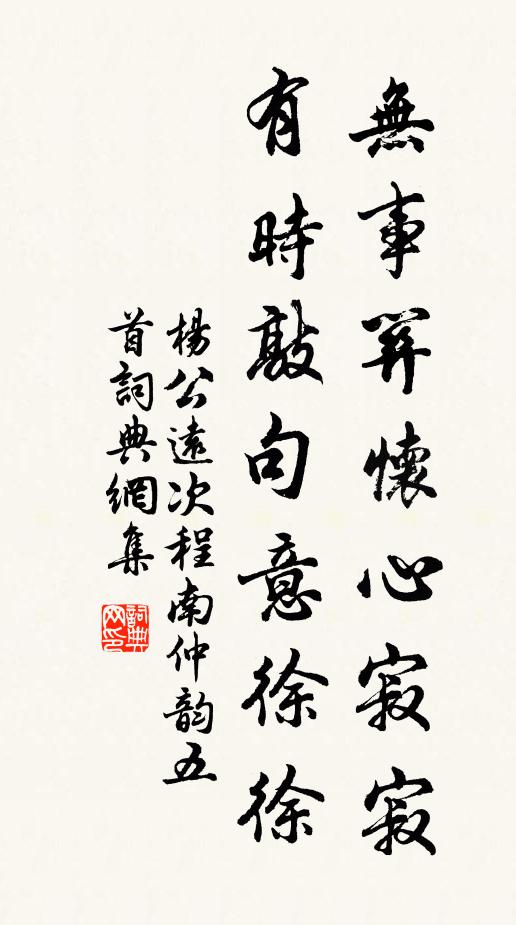 無事關懷心寂寂
有時敲句意徐徐
楊公遠次程南仲韵五
首詞典網集
詞典
网印